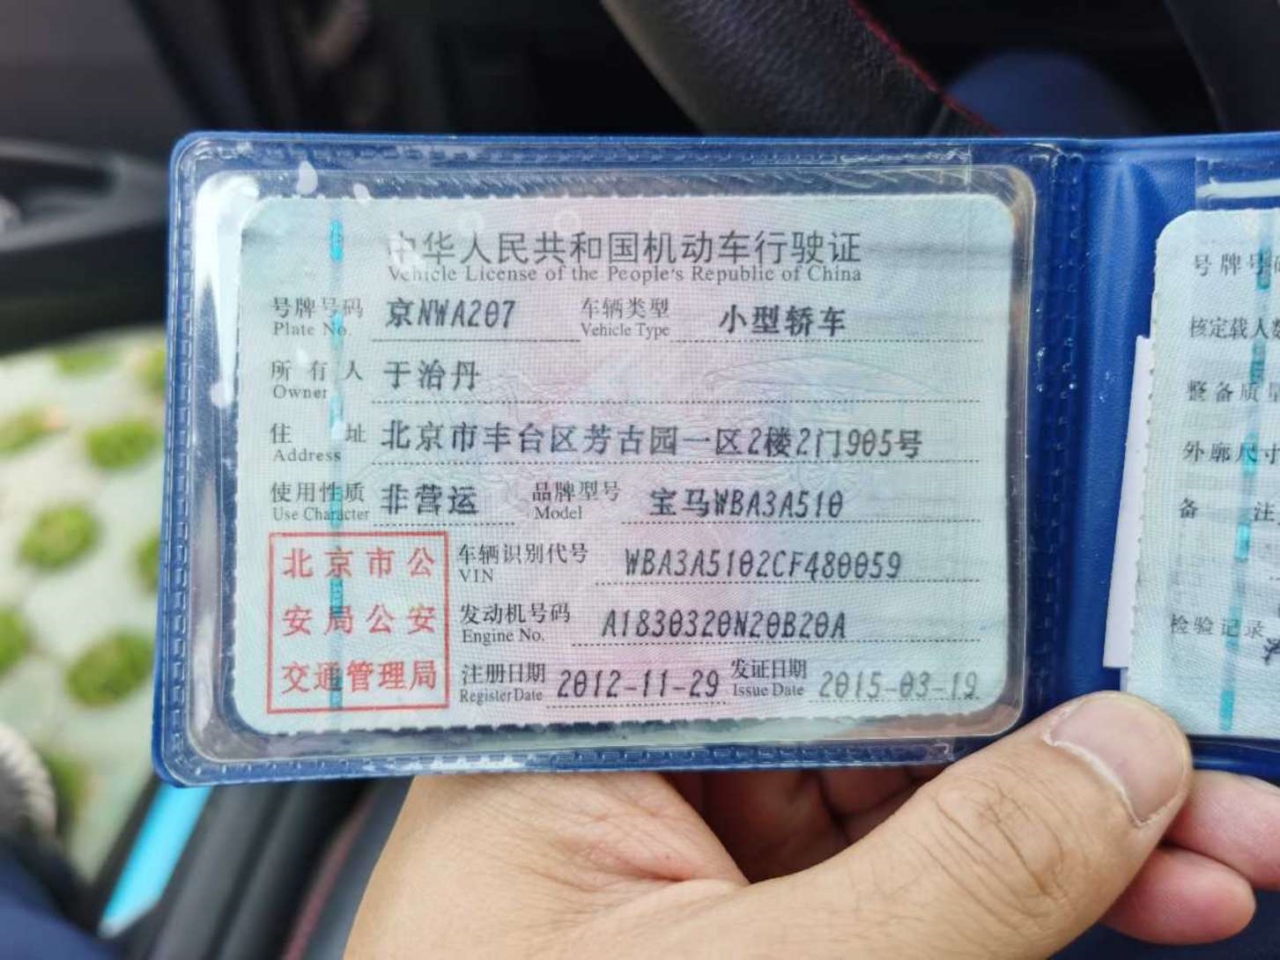 中华人民共和国机动车行驶证
Vehicle License of the People's Republic of China
号牌号码 京NWA207 车辆类型 小型轿车
Plate No. Vehicle Type
所有人 于治丹
Owner
住址 北京市丰台区芳古园一区2楼2门905号
Address
使用性质 非营运 品牌型号 宝马WBA3A510
Use Character Model
北京市公
安局公安
交通管理局
车辆识别代号 WBA3A5102CF480059
VIN
发动机号码 A1830320N20B20A
Engine No.
注册日期 2012-11-29 发证日期 2015-03-19
Register Date Issue Date
号牌号码
核定载人数
整备质量
外廓尺寸
备注
检验记录